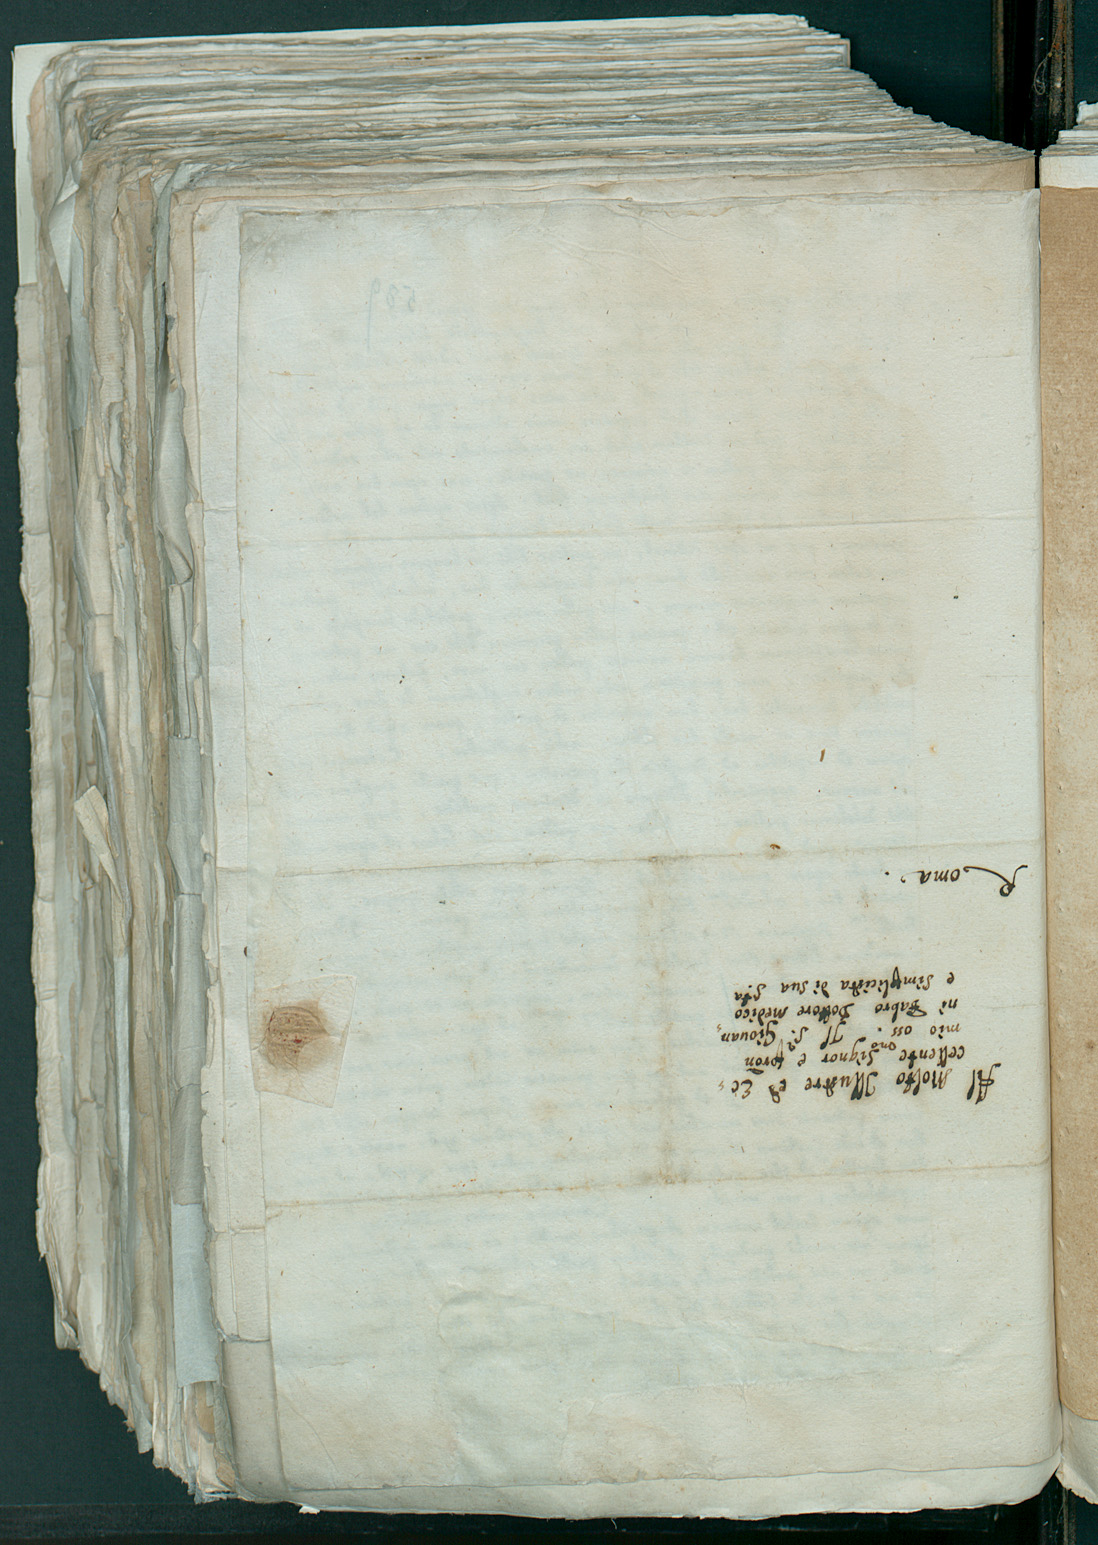 Al Molto Illustre et Ec,,
cellente Signor e pron̄
mio oss.mo Il S.r Giouan,,
ni Fabro Dottore Medico
e simplicista di sua S.ta
Roma.